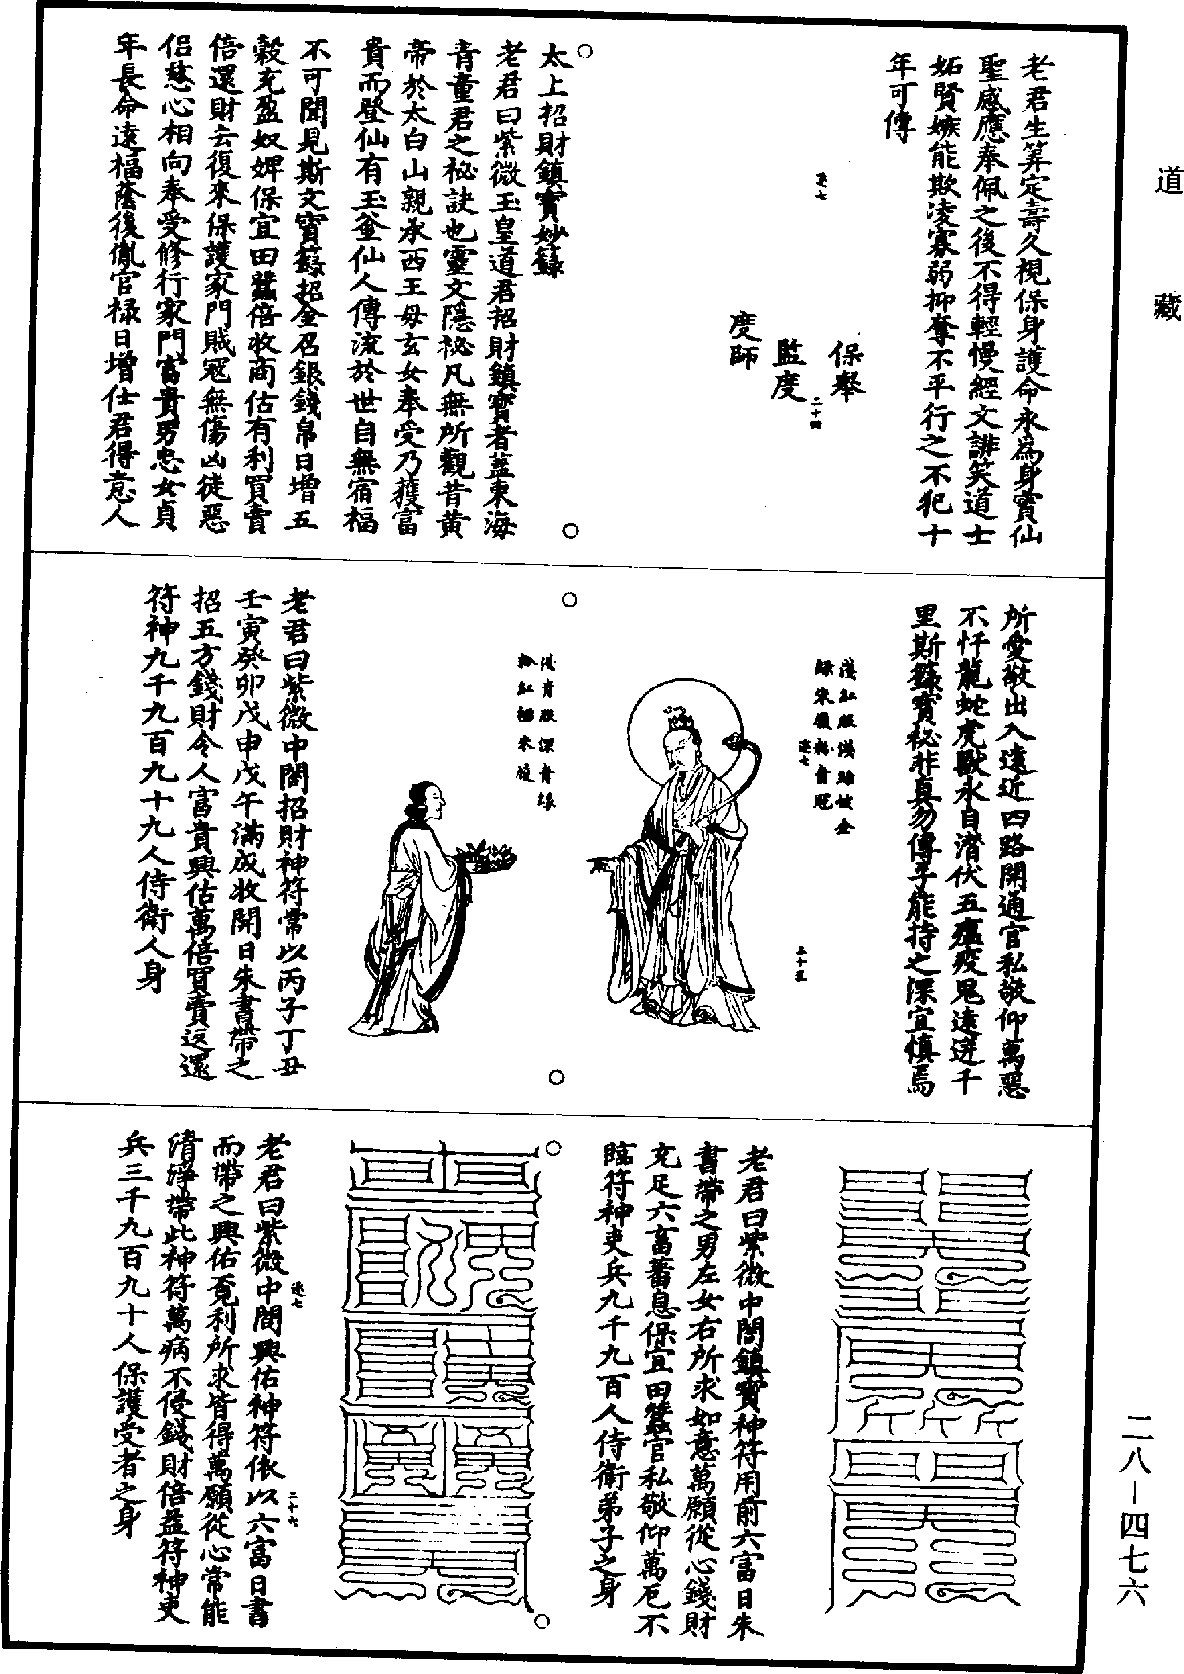 道藏
老君生筭定壽久視保身護命永為身寶仙
聖感應奉佩之後不得輕慢經文誹笑道士
妬賢嫉能欺淩寡弱抑奪不平行之不犯十
年可傳
保舉
二十四
監度
度師
太上招財鎮寶妙籙
老君曰紫微玉皇道君招財鎮寶者蓋東海
青童君之祕訣也靈文隱祕凡無所觀昔黃
帝於太白山親承西王母玄女奉受乃獲富
貴而登仙有玉釜仙人傳流於世自無宿福
不可聞見斯文寶籙招金召銀錢帛日增五
穀充盈奴婢保宜田蠶倍收商估有利買賣
倍還財去復來保護家門賊寇無傷凶徒惡
侶慈心相向奉受修行家門富貴男忠女貞
年長命遠福蔭後胤官祿日增仕君得意人
所愛敬出入遠近四路開通官私敬仰萬惡
不忓龍蛇虎獸永自潛伏五瘟疫鬼遠迸千
里斯籙寶祕非真勿傳子能持之深宜慎焉
二十五
老君曰紫微中闇招財神符常以丙子丁丑
壬寅癸卯戊申戊午滿成收開日朱書帶之
招五方錢財令人富貴興估萬倍買賣返還
符神九千九百九十九人侍衛人身
老君曰紫微中闇鎮寶神符用前六富日朱
書帶之男左女右所求如意萬願從心錢財
充足六畜蕃息保宜田蠶官私敬仰萬厄不
臨符神吏兵九千九百人侍衛弟子之身
老君曰紫微中闇興佑神符依以六富日書
而帶之興佑覓利所求皆得萬願從心常能
清淨帶此神符萬病不侵錢財倍益符神吏
兵三千九百九十人保護受者之身
二八－四七六